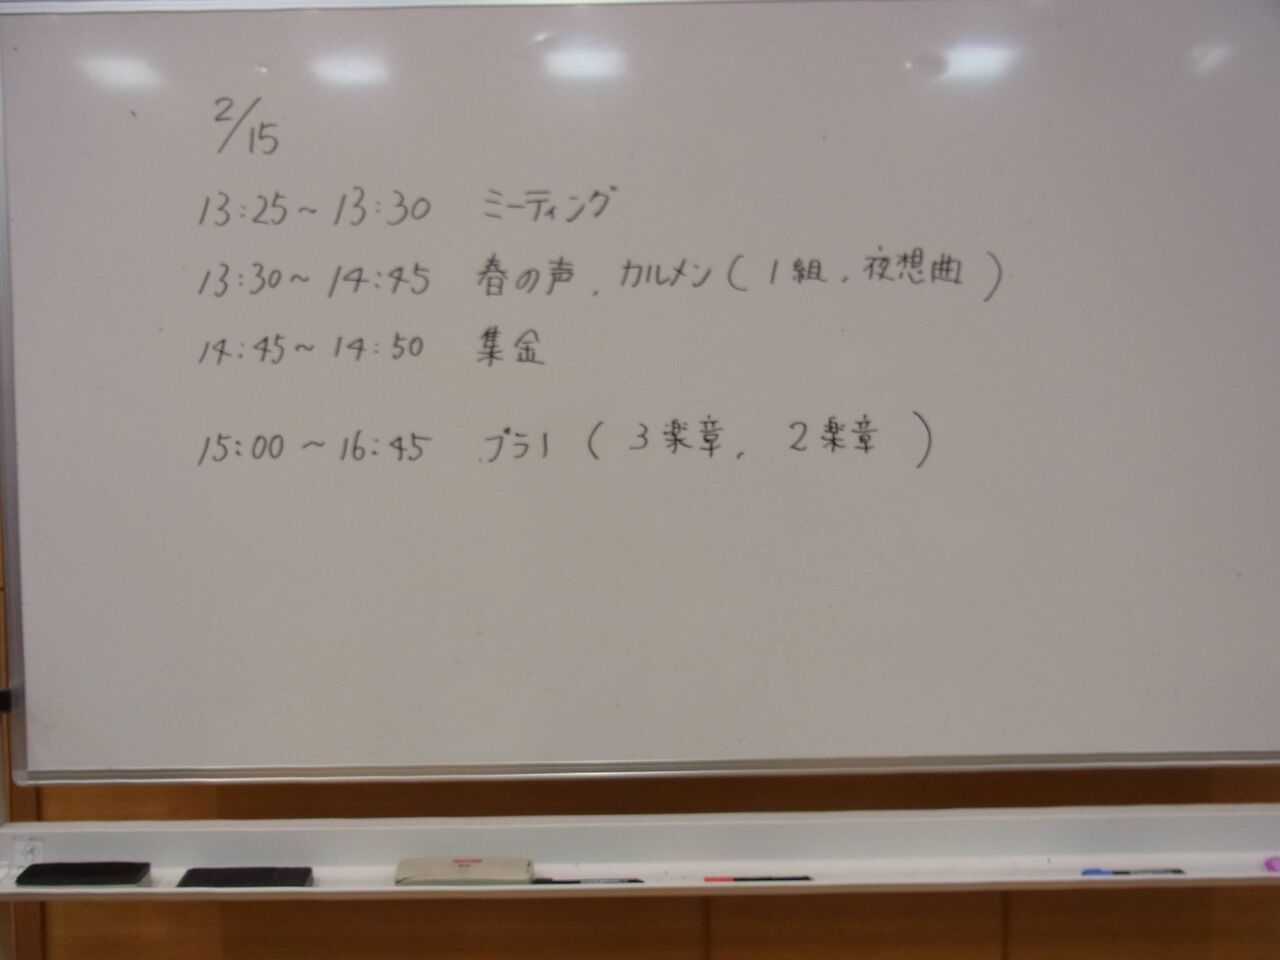 2/15
13:25~13:30 ミーティング
13:30~14:45 春の声、カルメン(1組、夜想曲)
14:45~14:50 集金
15:00~16:45 ブラ1(3楽章、2楽章)